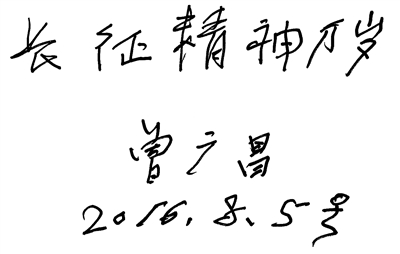 长征精神万岁
曾广昌
2016.8.5号